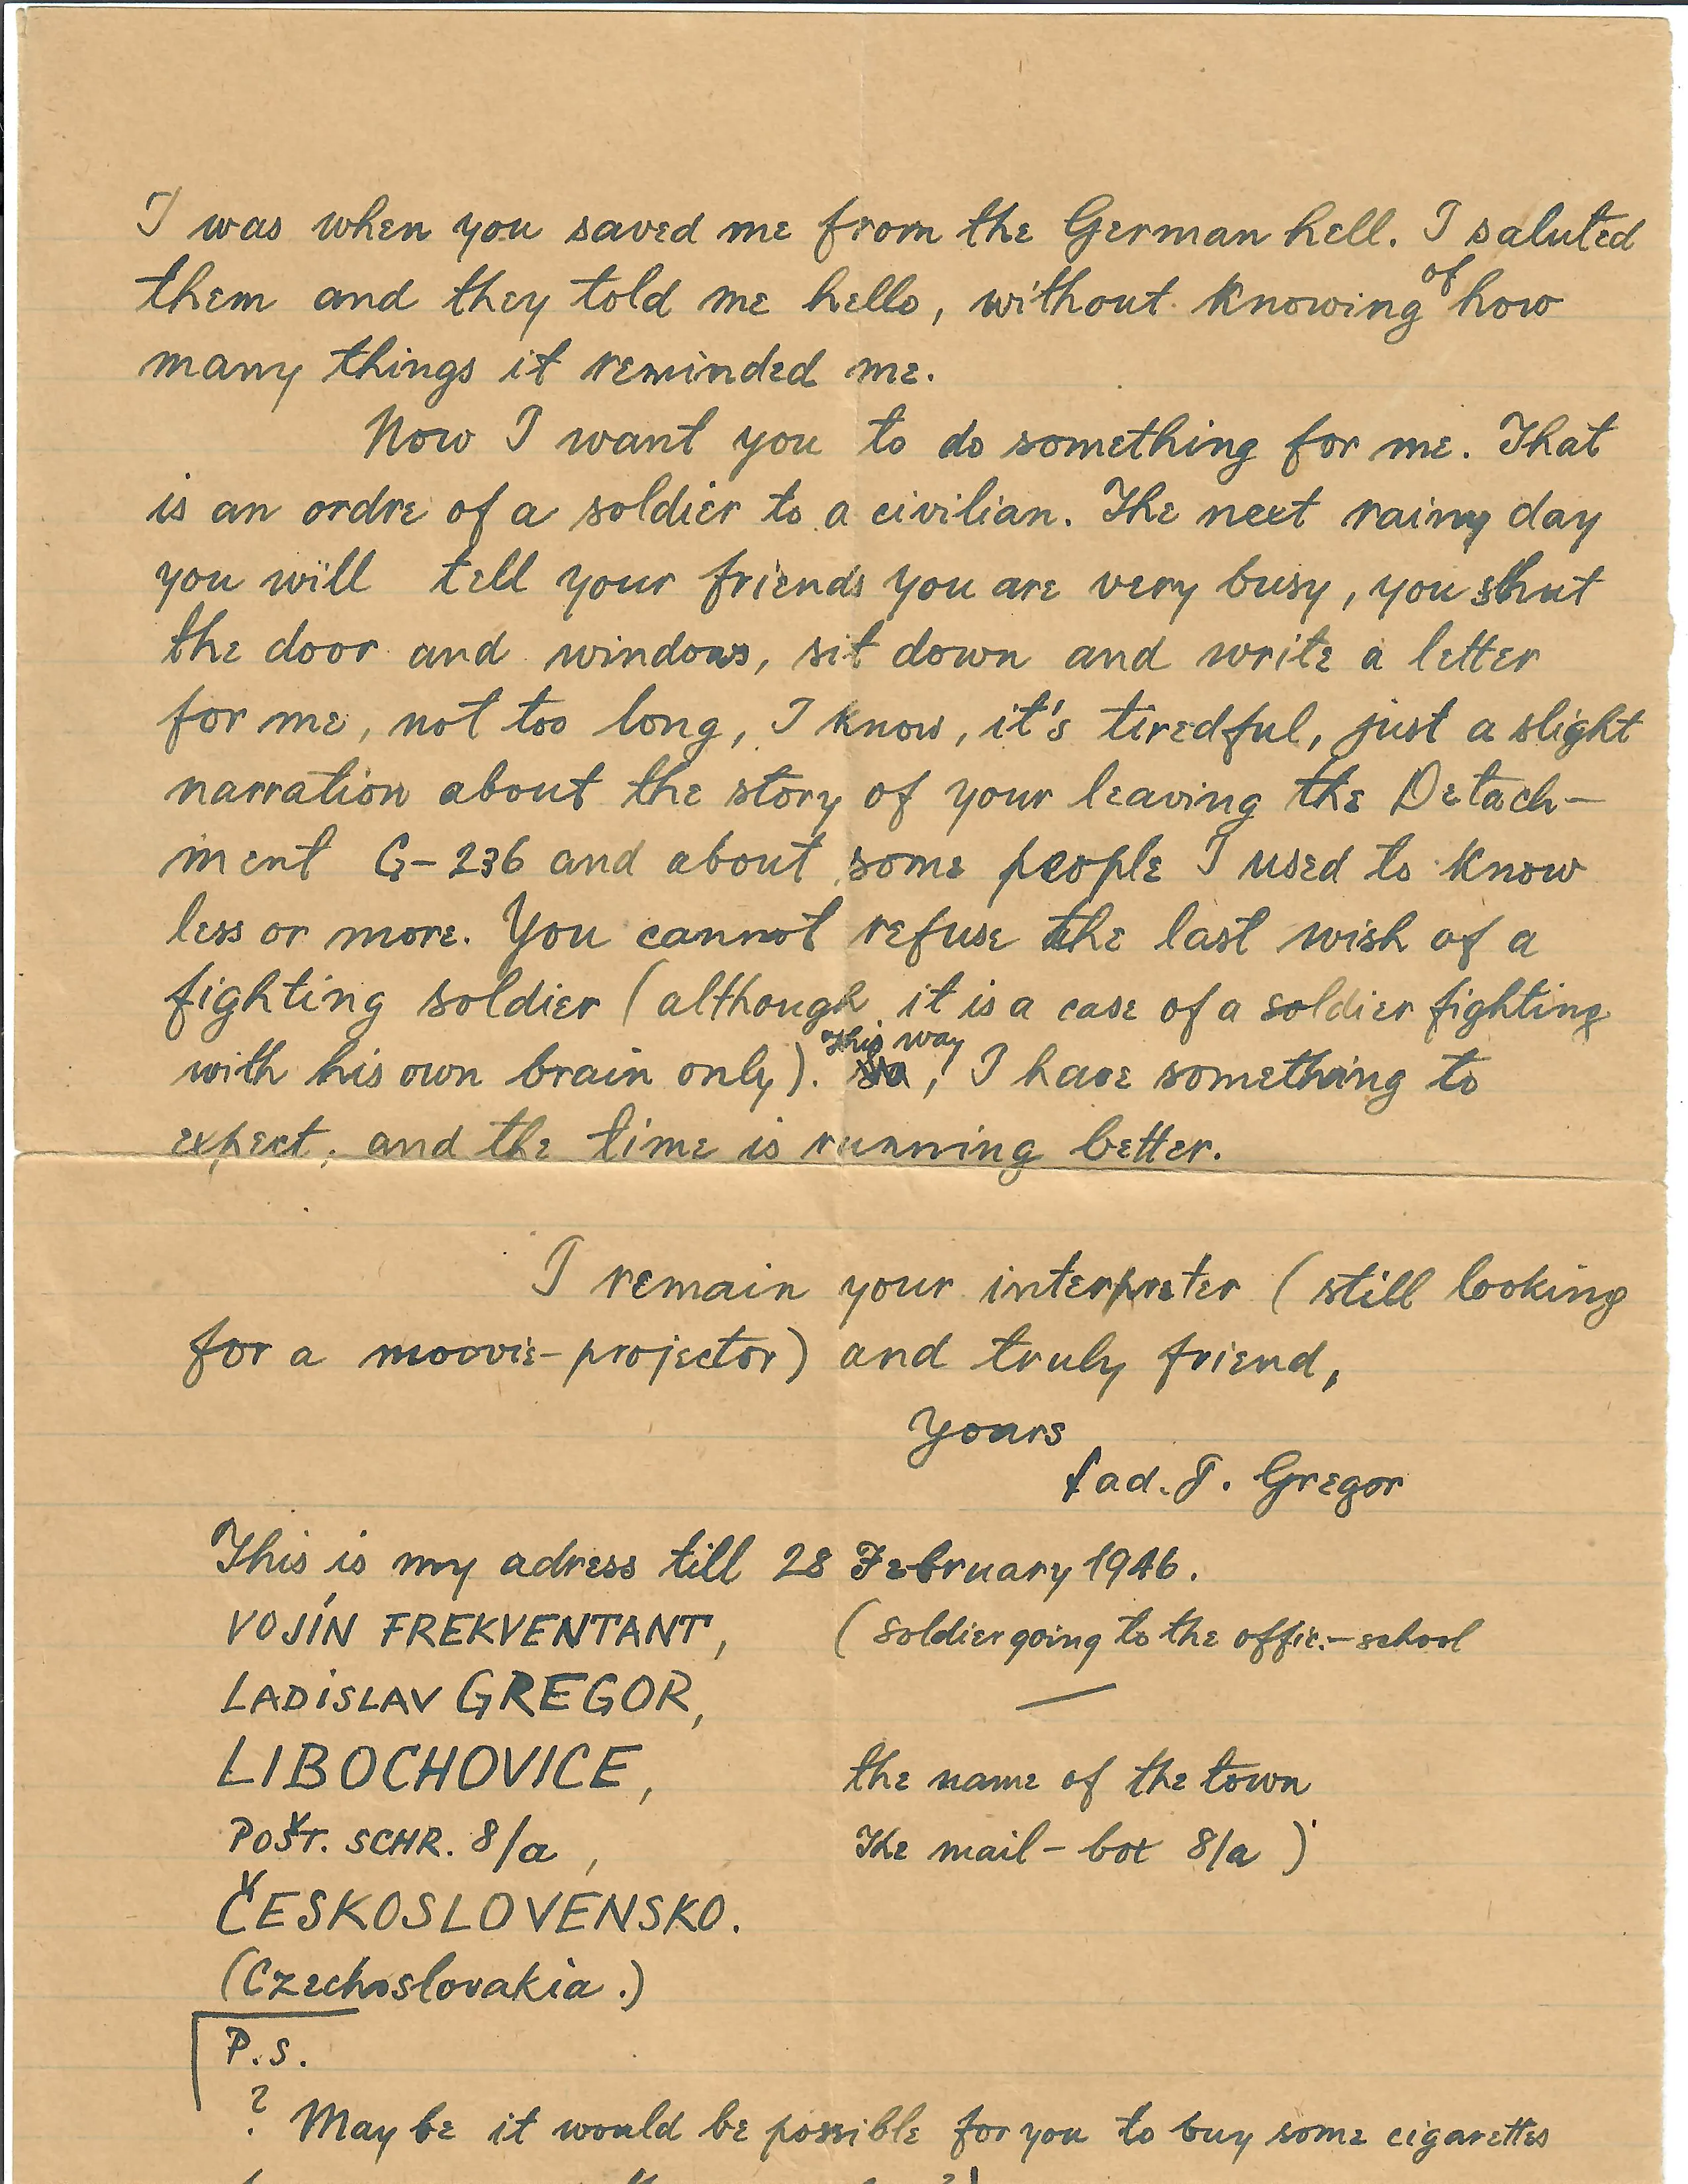 I was when you saved me from the German hell. I saluted
them and they told me hello, without knowing of how
many things it reminded me.
Now I want you to do something for me. That
is an ordre of a soldier to a civilian. The next rainy day
you will tell your friends you are very busy, you shut
the door and windows, sit down and write a letter
for me, not too long, I know, it's tiredful, just a slight
narration about the story of your leaving the Detach-
ment G-236 and about some people I used to know
less or more. You cannot refuse the last wish of a
fighting soldier (although it is a case of a soldier fighting
with his own brain only). This way, I have something to
expect, and the time is running better.
I remain your interpreter (still looking
for a moovie-projector) and truly friend,
Yours
Lad. T. Gregor
This is my adress till 28 February 1946.
VOJÍN FREKVENTANT, (soldier going to the offic.-school
LADISLAV GREGOR, —
LIBOCHOVICE, the name of the town
POŠT. SCHR. 8/a, The mail-box 8/a)
ČESKOSLOVENSKO.
(Czechoslovakia.)
P.S.
? May be it would be possible for you to buy some cigarettes